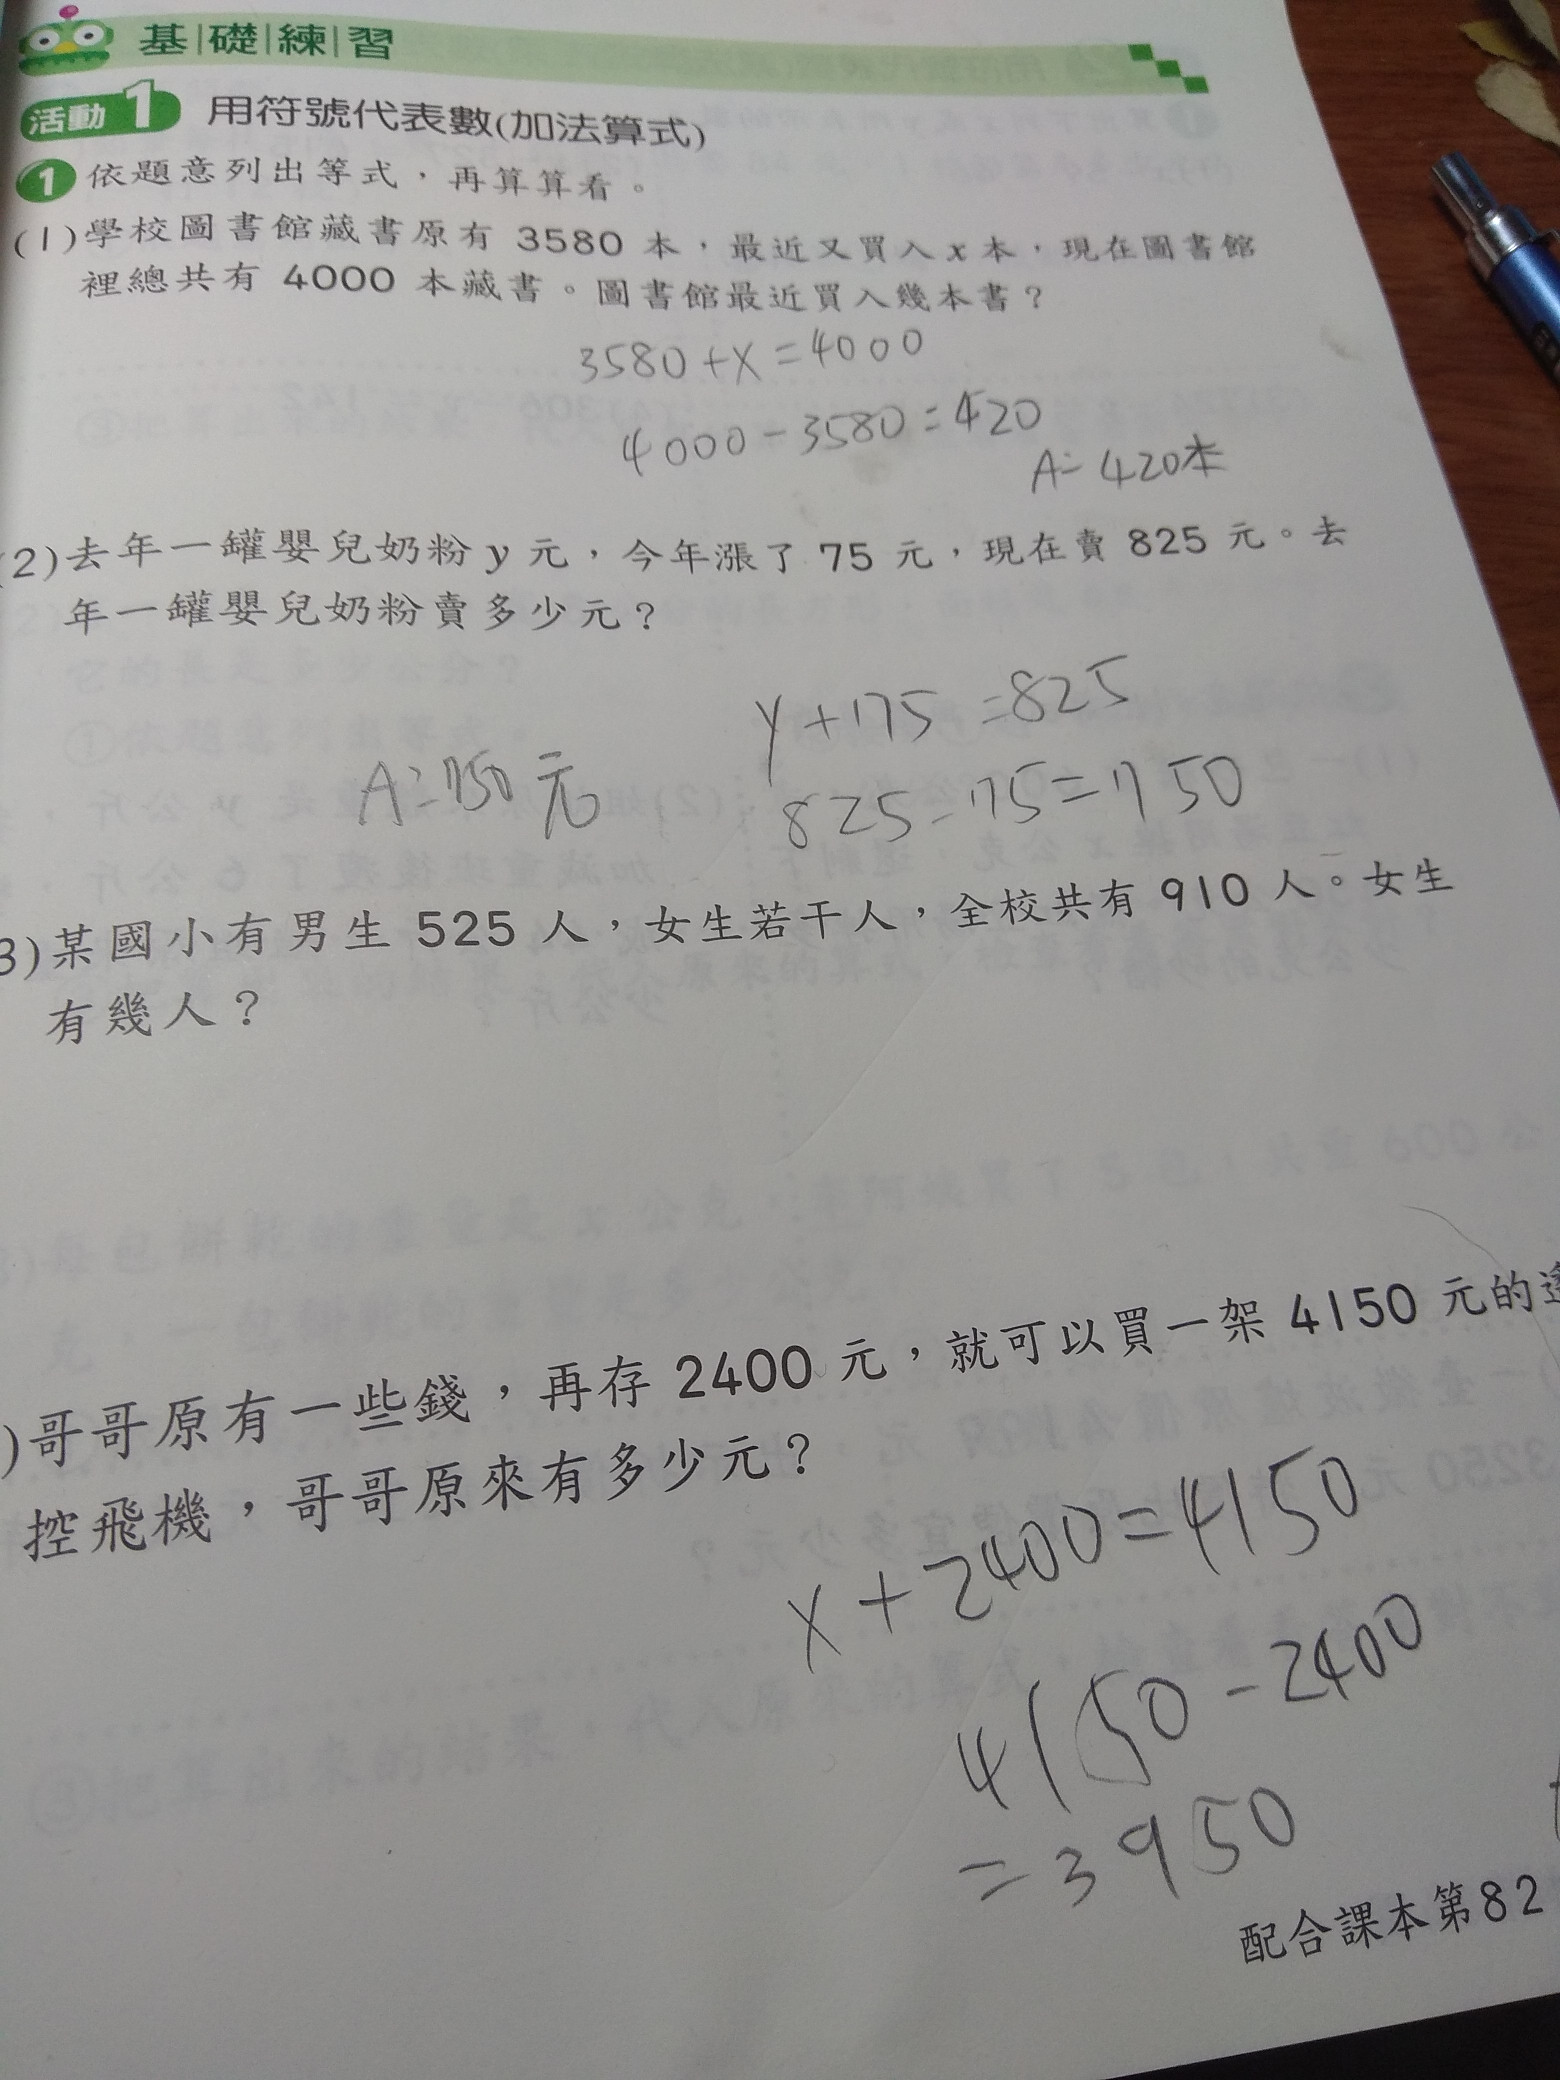 基礎練習
活動1 用符號代表數(加法算式)
1 依題意列出等式，再算算看。
(1)學校圖書館藏書原有 3580 本，最近又買入x本，現在圖書館
裡總共有 4000 本藏書。圖書館最近買入幾本書？
3580+X=4000
4000-3580=420
A=420本
(2)去年一罐嬰兒奶粉y元，今年漲了 75 元，現在賣 825 元。去
年一罐嬰兒奶粉賣多少元？
y+75=825
825-75=750
A=750元
3)某國小有男生 525 人，女生若干人，全校共有 910 人。女生
有幾人？
)哥哥原有一些錢，再存 2400 元，就可以買一架 4150 元的遙
控飛機，哥哥原來有多少元？
X+2400=4150
4150-2400
=3950
配合課本第82